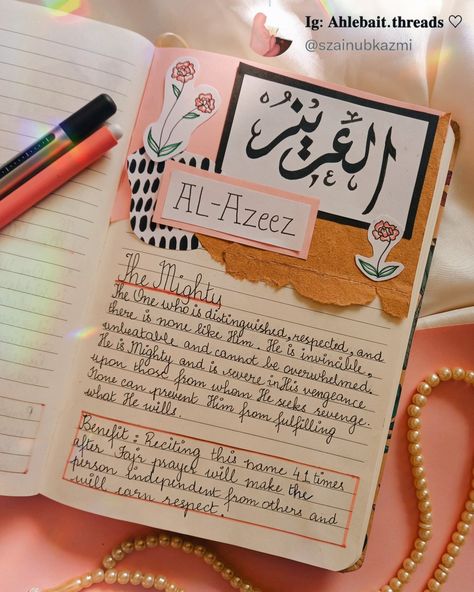 Ig: Ahlebait.threads ♡
@szainubkazmi
العزيز
AL-AZEEZ
The Mighty
The One who is distinguished, respected, and
there is none like Him. He is invincible,
unbeatable and cannot be overwhelmed.
He is Mighty and is severe in His vengeance
upon those from whom He seeks revenge.
None can prevent Him from fulfilling
what He wills.
Benefit : Reciting this name 41 times
after Fajr prayer will make the
person independent from others and
will earn respect.